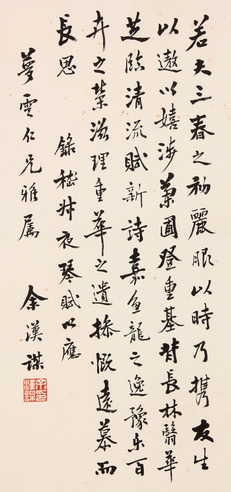 若夫三春之初麗服以時乃携友生
以遨以嬉涉蘭圃登重基背長林翳華
芝臨清流賦新詩嘉魚龍之逸豫樂百
卉之榮滋理重華之遺操慨遠慕而
長思 錄嵇叔夜琴賦以應
夢雲仁兄雅屬
余漢謀